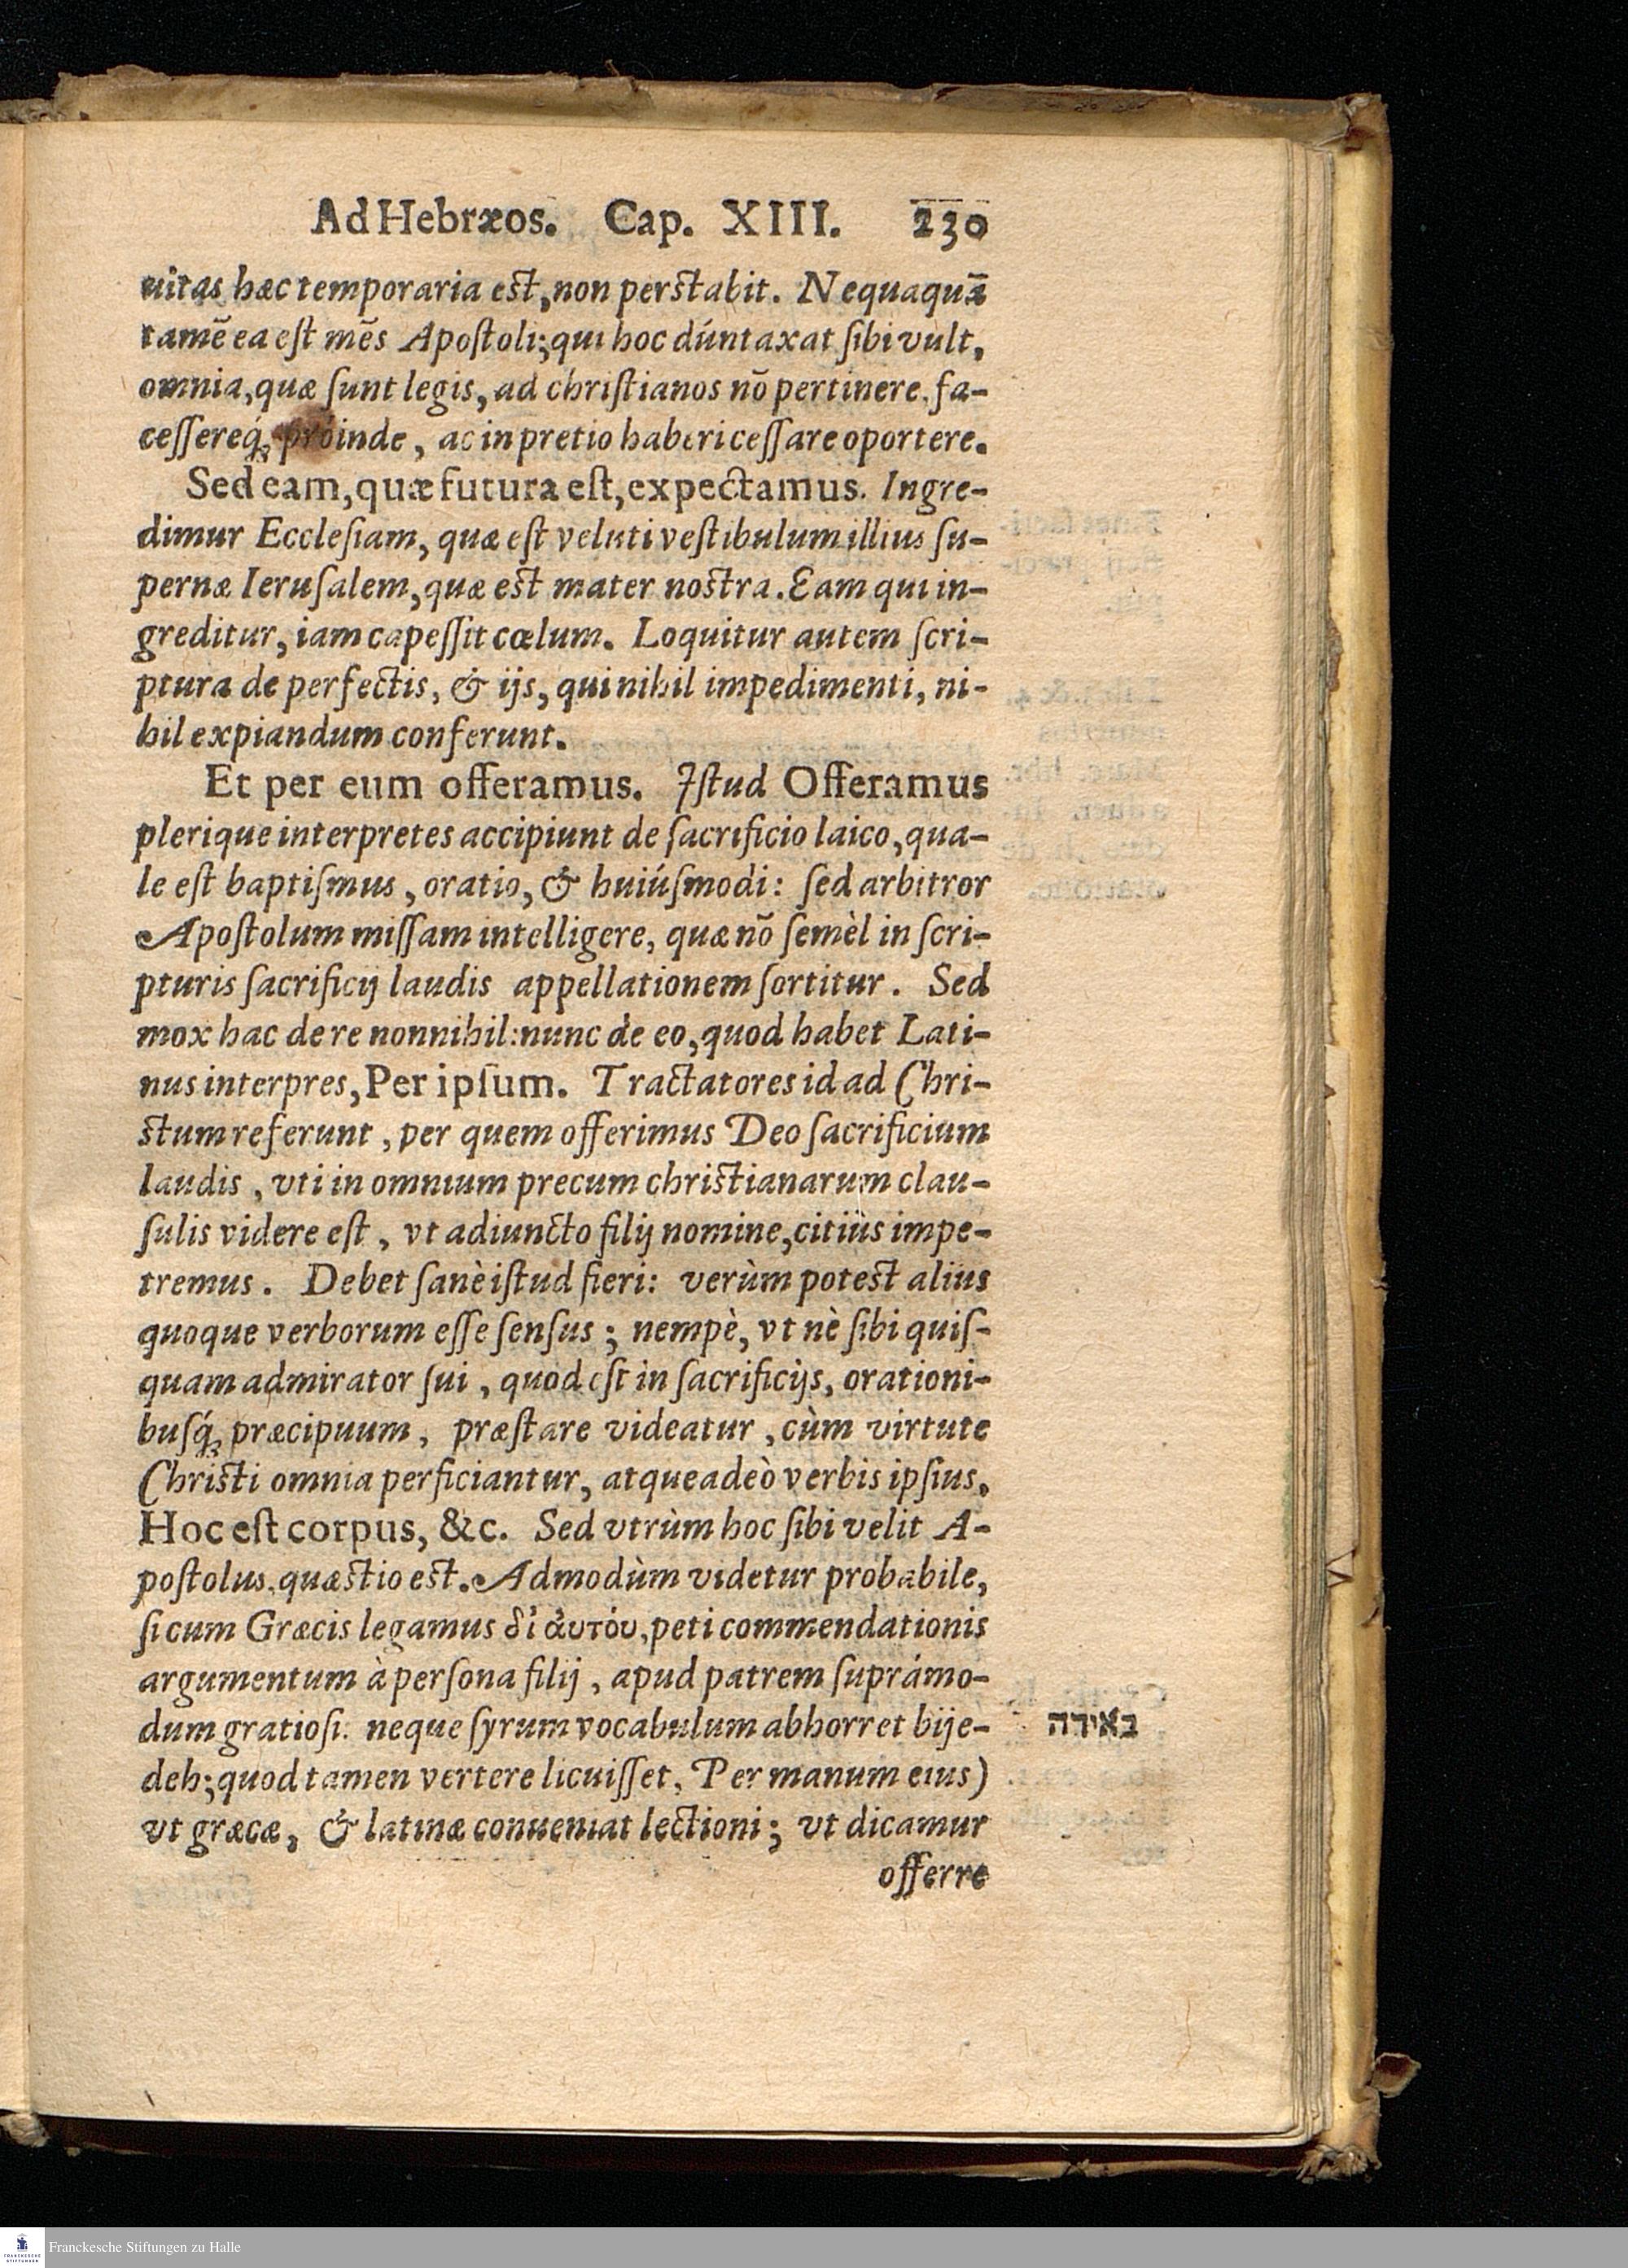 Ad Hebræos. Cap. XIII. 230
uitas hæc temporaria est, non perstabit. Nequaquã
tamẽ ea eſt mẽs Apoſtoli; qui hoc dúntaxat ſibi vult,
omnia, quæ ſunt legis, ad chriſtianos nõ pertinere, fa-
ceſſereq́ꝫ proinde, ac in pretio haberi ceſſare oportere.
Sed eam, quæ futura eſt, expectamus. Ingre-
dimur Eccleſiam, quæ eſt veluti veſtibulum illius ſu-
pernæ Ieruſalem, quæ est mater nostra. Eam qui in-
greditur, iam capeſſit cœlum. Loquitur autem ſcri-
ptura de perfectis, & ijs, qui nihil impedimenti, ni-
hil expiandum conferunt.
Et per eum offeramus. Iſtud Offeramus
plerique interpretes accipiunt de ſacrificio laico, qua-
le eſt baptiſmus, oratio, & huiúſmodi: ſed arbitror
Apoſtolum miſſam intelligere, quæ nõ ſemèl in ſcri-
pturis ſacrificij laudis appellationem ſortitur. Sed
mox hac de re nonnihil: nunc de eo, quod habet Lati-
nus interpres, Per ipſum. Tractatores id ad Chri-
stum referunt, per quem offerimus Deo ſacrificium
laudis, vti in omnium precum christianarum clau-
ſulis videre eſt, vt adiuncto filij nomine, citiùs impe-
tremus. Debet ſanè iſtud fieri: verùm potest alius
quoque verborum eſſe ſenſus; nempè, vt nè ſibi quiſ-
quam admirator ſui, quod eſt in ſacrificijs, orationi-
buſq́ꝫ præcipuum, præſtare videatur, cùm virtute
Christi omnia perficiantur, atque adeò verbis ipſius,
Hoc eſt corpus, &c. Sed vtrùm hoc ſibi velit A-
poſtolus, quæstio est. Admodùm videtur probabile,
ſi cum Græcis legamus δἰ ἀυτόυ, peti commendationis
argumentum à perſona filij, apud patrem ſuprámo-
dum gratioſi: neque ſyrum vocabulum abhorret bije-
באידה
deh; quod tamen vertere licuiſſet, Per manum eius)
vt græcæ, & latinæ conueniat lectioni; vt dicamur
offerre
Franckesche Stiftungen zu Halle
FRANCKESCHE STIFTUNGEN